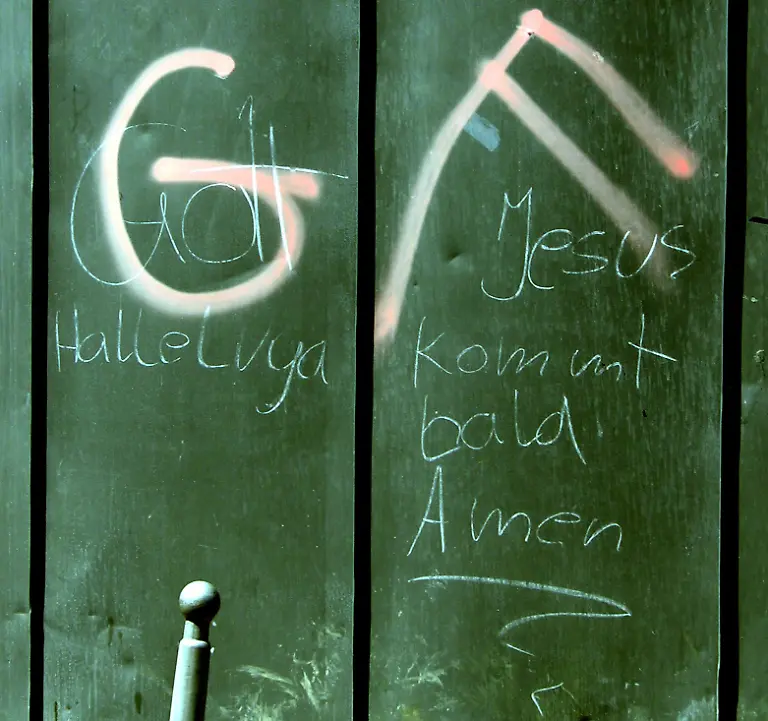 G F
Gott
Halleluya
Jesus
kommt
bald
Amen